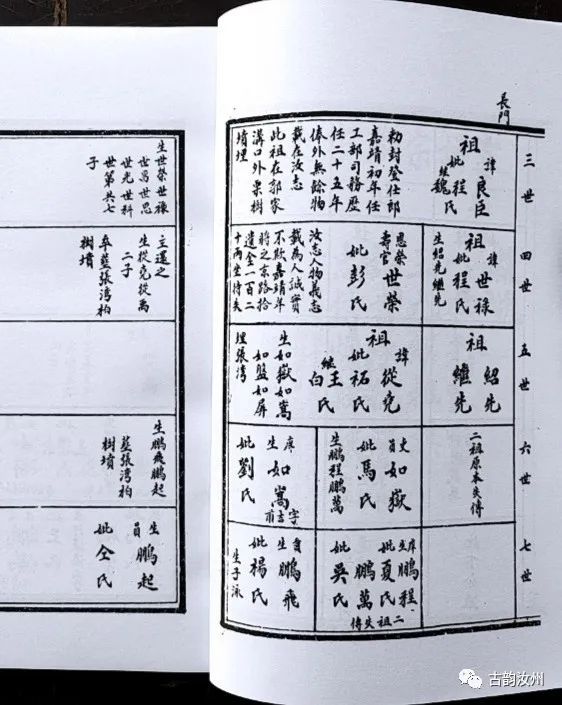 長門
三世
祖
諱良臣
妣程氏
繼魏氏
勅封登仕郎
嘉靖初年任
工部司務歷
任二十五年
俸外無餘物
載在汝志
此祖在郭家
溝口外果樹
墳埋
生世榮世祿
世昌世思
世光世科
世第共七
子
四世
祖
諱世祿
妣程氏
生紹先繼先
恩榮世榮
壽官
妣彭氏
汝志人物義志
載為人誠實
不欺嘉靖年
將之京路拾
遺金一百二
十兩坐待失
主還之
生從堯從禹
二子
卒葬張灣柏
樹墳
五世
祖
紹先
繼先
祖
諱從堯
妣祏氏
繼王氏
白
生如嶽如嵩
如盤如屏
埋張灣
六世
二祖原本失傳
史員如嶽
妣馬氏
生鵬程鵬萬
庠生如嵩字
妣劉氏
生鵬飛鵬起
葬張灣柏
樹墳
七世
庠生鵬程
妣夏氏
鵬萬
妣吳氏
二祖失傳
生鵬飛
妣楊氏
生子泳
生員鵬起
妣仝氏
古韵汝州